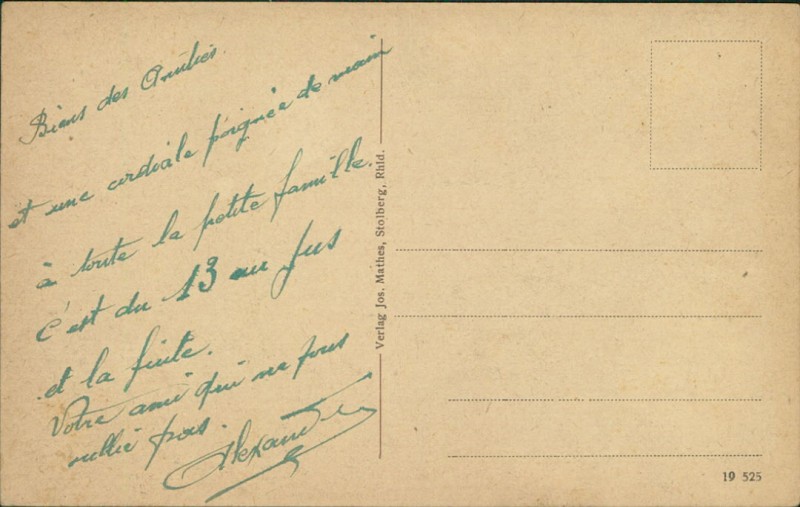 Biens des Amitiés.
et une cordiale poignée de main
à toute la petite famille.
c'est du 13 au jus
et la fuite.
Votre ami qui ne vous
oublie pas.
Alexandre
Verlag Jos. Mathes, Stolberg, Rhld.
19 525